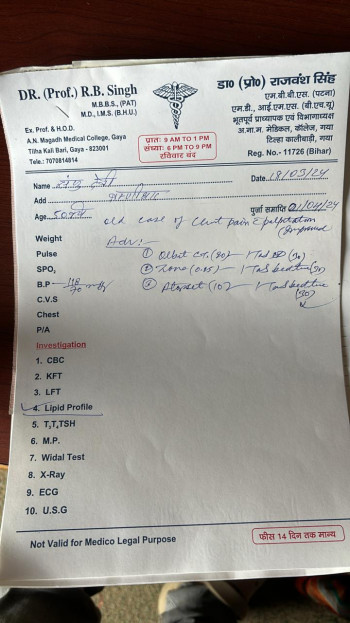 DR. (Prof.) R.B. Singh
M.B.B.S., (PAT)
M.D., I.M.S. (B.H.U.)
Ex. Prof. & H.O.D.
A.N. Magadh Medical College, Gaya
Tilha Kali Bari, Gaya - 823001
Tele.: 7070814814
प्रातः 9 AM TO 1 PM
संध्याः 6 PM TO 9 PM
रविवार बंद
डा० (प्रो०) राजवंश सिंह
एम.बी.बी.एस. (पटना)
एम.डी., आई.एम.एस. (बी.एच.यू)
भूतपूर्व प्राध्यापक एवं विभागाध्यक्ष
अ.ना.म. मेडिकल, कॉलेज, गया
टिल्हा कालीबाड़ी, गया
Reg. No.- 11726 (Bihar)
Name देवी Date 18/03/24
Add
पुर्जा समाप्ति 01/04/24
Age 50
old case of Chest pain & palpitation
(Improved
Weight Adv:-
Pulse ①
SPO₂ ② 1 Tab bedtime
B.P 70 mmHg ③ (10) — 1 Tab bedtime
C.V.S
Chest
P/A
Investigation
1. CBC
2. KFT
3. LFT
4. Lipid Profile
5. T₃T₄TSH
6. M.P.
7. Widal Test
8. X-Ray
9. ECG
10. U.S.G
Not Valid for Medico Legal Purpose
फीस 14 दिन तक मान्य